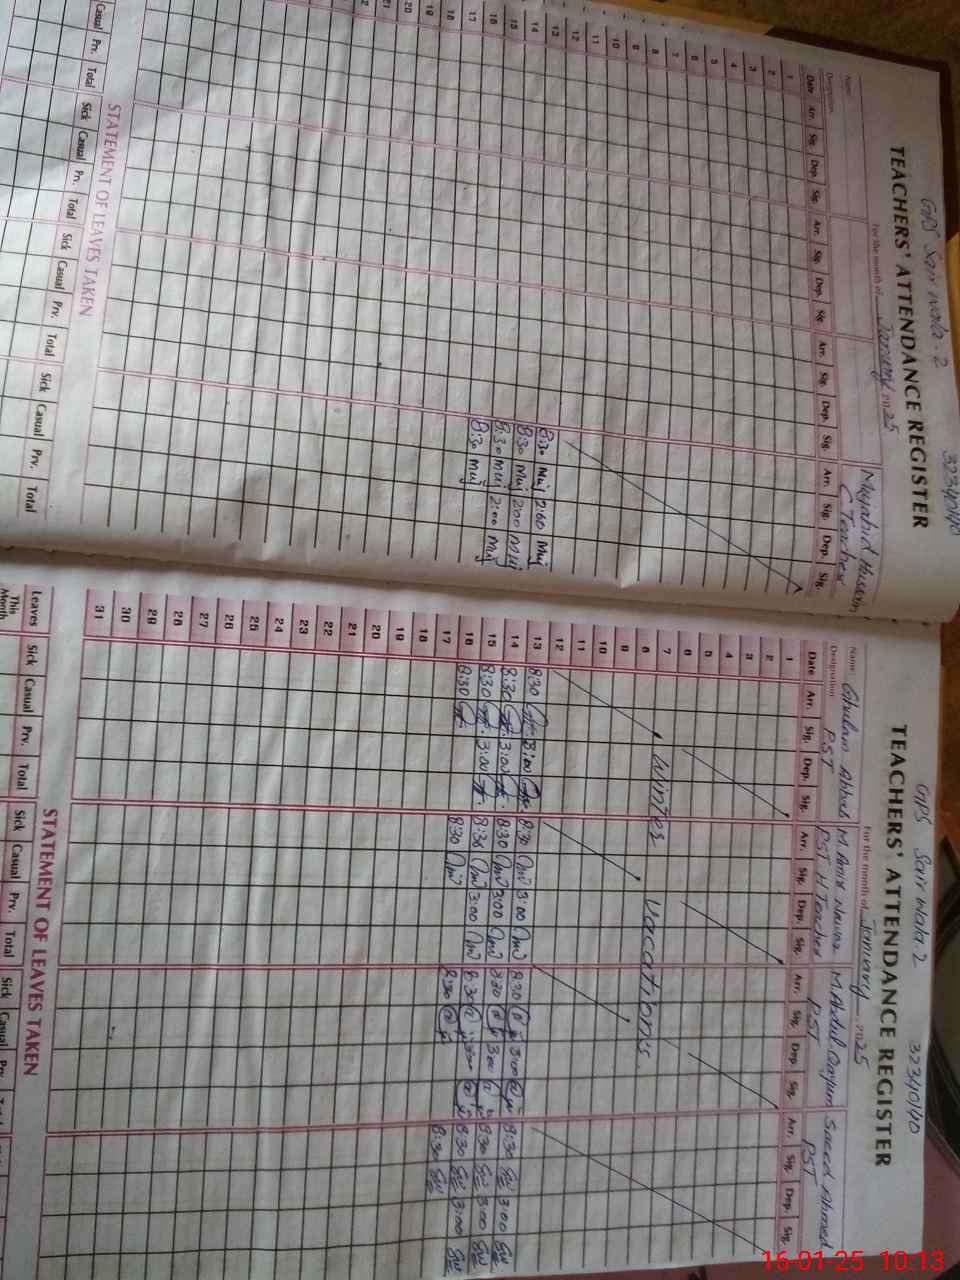 GPS Sairwala. 2 32340140
TEACHERS' ATTENDANCE REGISTER
For the month of January 2025
Name Mujahid Hussain
Designation C Teacher
Date Arr. Sig. Dep. Sig. Arr. Sig. Dep. Sig. Arr. Sig. Dep. Sig. Arr. Sig. Dep. Sig.
1
2
3
4
5
6
7
8
9
10
11
12
13 8:30 Muj 2:00 Muj
14 8:30 Muj 2:00 Muj
15 8:30 Muj 2:00 Muj
16 8:30 Muj
17
18
19
20
21
STATEMENT OF LEAVES TAKEN
Casual Prv. Total Sick Casual Prv. Total Sick Casual Prv. Total Sick Casual Prv. Total
GPS Sairwala.2 32340140
TEACHERS' ATTENDANCE REGISTER
For the month of January 2025
Name Ghulam Abbas M. Amir Nawaz M. Abdul Qayum Saeed Ahmed
Designation PST PST H Teacher PST PST
Date Arr. Sig. Dep. Sig. Arr. Sig. Dep. Sig. Arr. Sig. Dep. Sig. Arr. Sig. Dep. Sig.
1
2
3
4
5
6
7 Winter Vacations.
8
9
10
11
12
13 8:30 3:00 8:30 3:00 8:30 3:00 8:30 3:00
14 8:30 3:00 8:30 3:00 8:30 3:00 8:30 3:00
15 8:30 3:00 8:30 3:00 8:30 3:00 8:30 3:00
16 8:30 8:30 8:30 8:30
17
18
19
20
21
22
23
24
25
26
27
28
29
30
31
STATEMENT OF LEAVES TAKEN
Leaves Sick Casual Prv. Total Sick Casual Prv. Total Sick Casual Prv. Total
This
Month
16-01-25 10:13